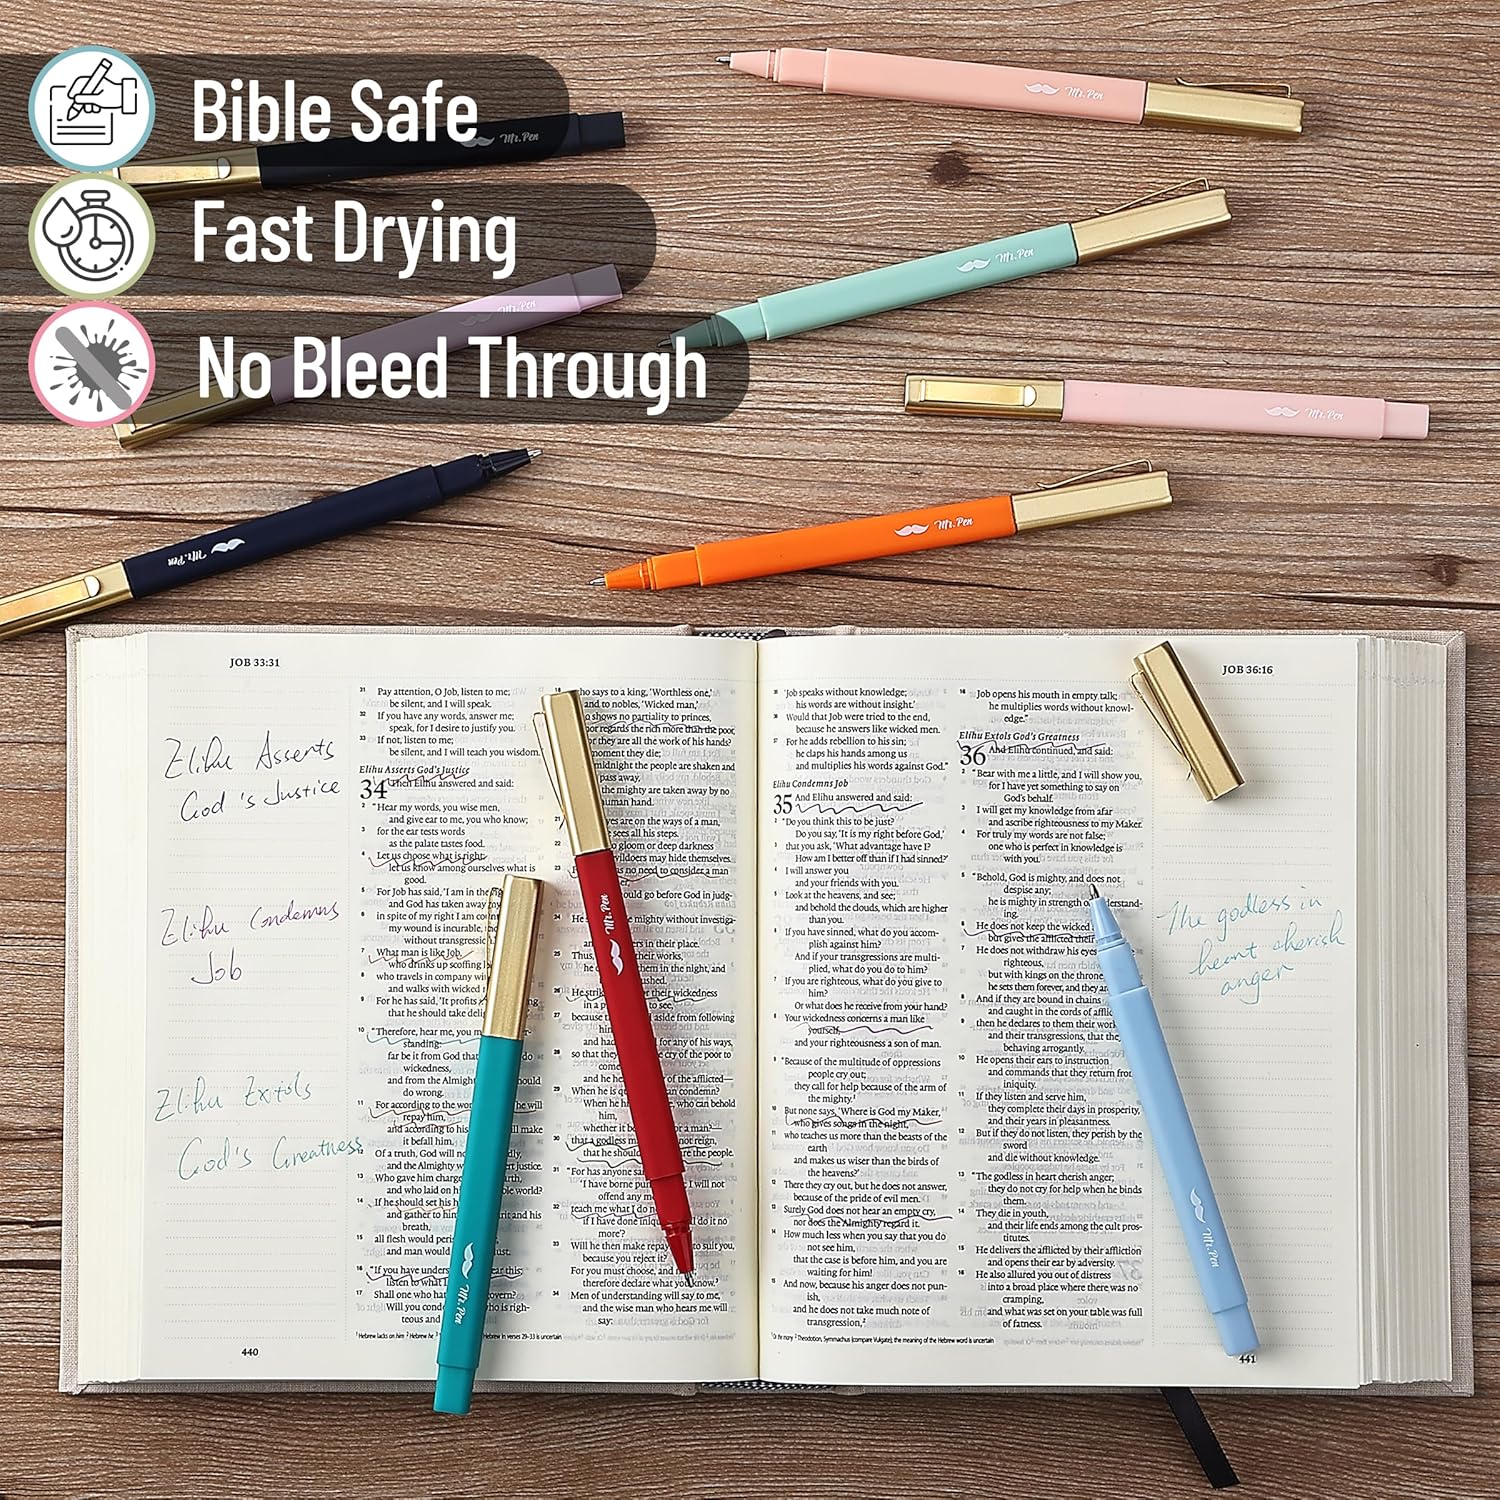 Bible Safe
Fast Drying
No Bleed Through
Mr. Pen
Mr. Pen
Mr. Pen
Mr. Pen
Mr. Pen
Mr. Pen
Mr. Pen
JOB 33:31
Elihu Asserts
God's Justice
Elihu Condemns
Job
Elihu Extols
God's Greatness
31 Pay attention, O Job, listen to me;
be silent, and I will speak.
32 If you have any words, answer me;
speak, for I desire to justify you.
33 If not, listen to me;
be silent, and I will teach you wisdom.
Elihu Asserts God's Justice
34 Then Elihu answered and said:
2 "Hear my words, you wise men,
and give ear to me, you who know;
3 for the ear tests words
as the palate tastes food.
4 Let us choose what is right;
let us know among ourselves what is
good.
5 For Job has said, 'I am in the
and God has taken away
6 in spite of my right I am
my wound is incurable,
without
7 What man is like Job,
who drinks up scoffing
8 who travels in company
and walks with wicked
9 For he has said, 'It profits
that he should take
10 "Therefore, hear me, you
standing:
far be it from God that do
wickedness,
and from the should
do wrong.
11 For according to the he will
repay him,
and according to his make
it befall him.
12 Of a truth, God will not
and the Almighty justice.
13 Who gave him charge
and who laid on world?
14 If he should set his
and gather to him and his
breath,
15 all flesh would
and man would
16 "If you have this;
listen to what
17 Shall one who govern?
Will you who is
teous and
18 who says to a king, 'Worthless one,'
and to nobles, 'Wicked man,'
shows no partiality to princes,
nor regards the rich more than the poor,
for they are all the work of his hands?
moment they die;
midnight the people are shaken and
pass away,
the mighty are taken away by no
human hand.
21 eyes are on the ways of a man,
sees all his steps.
no gloom or deep darkness
may hide themselves.
no need to consider a man
should go before God in
mighty without
in their place.
25 Thus, their works,
he them in the night, and
26 He their wickedness
in a to see,
27 because aside from following
and had for any of his ways,
28 so that they cry of the poor to
and he of the afflicted—
29 When he is condemn?
When he who can behold
him,
whether it be a man?—
30 that a godless man not reign,
that he should the people.
31 "For has anyone
'I have borne I will not
offend any
32 teach me what I do
if I have done I will do it no
more'?
33 Will he then make to suit you,
because you reject it?
For you must choose, and not
therefore declare what you know.'
34 Men of understanding will say to me,
and the wise man who hears me will
say:
Hebrew lacks on him Hebrew he Hebrew in verses 29–33 is uncertain
440
Mr. Pen
Mr. Pen
35 'Job speaks without knowledge;
his words are without insight.'
36 Would that Job were tried to the end,
because he answers like wicked men.
37 For he adds rebellion to his sin;
he claps his hands among us
and multiplies his words against God."
Elihu Condemns Job
35 And Elihu answered and said:
2 "Do you think this to be just?
Do you say, 'It is my right before God,'
3 that you ask, 'What advantage have I?
How am I better off than if I had sinned?'
4 I will answer you
and your friends with you.
5 Look at the heavens, and see;
and behold the clouds, which are higher
than you.
6 If you have sinned, what do you accom-
plish against him?
And if your transgressions are multi-
plied, what do you do to him?
7 If you are righteous, what do you give to
him?
Or what does he receive from your hand?
8 Your wickedness concerns a man like
yourself,
and your righteousness a son of man.
9 "Because of the multitude of oppressions
people cry out;
they call for help because of the arm of
the mighty.
10 But none says, 'Where is God my Maker,
who gives songs in the night,
11 who teaches us more than the beasts of the
earth
and makes us wiser than the birds of
the heavens?'
12 There they cry out, but he does not answer,
because of the pride of evil men.
13 Surely God does not hear an empty cry,
nor does the Almighty regard it.
14 How much less when you say that you do
not see him,
that the case is before him, and you are
waiting for him!
15 And now, because his anger does not pun-
ish,
and he does not take much note of
transgression,
16 Job opens his mouth in empty talk;
he multiplies words without knowl-
edge."
Elihu Extols God's Greatness
36 And Elihu continued, and said:
2 "Bear with me a little, and I will show you,
for I have yet something to say on
God's behalf.
3 I will get my knowledge from afar
and ascribe righteousness to my Maker.
4 For truly my words are not false;
one who is perfect in knowledge is
with you.
5 "Behold, God is mighty, and does not
despise any;
he is mighty in strength of understand-
ing.
6 He does not keep the wicked
but gives the afflicted their
7 He does not withdraw his eyes
righteous,
but with kings on the throne
he sets them forever, and they are
8 And if they are bound in chains
and caught in the cords of
9 then he declares to them their work
and their transgressions, that they
behaving arrogantly.
10 He opens their ears to instruction
and commands that they return from
iniquity.
11 If they listen and serve him,
they complete their days in prosperity,
and their years in pleasantness.
12 But if they do not listen, they perish by the
sword
and die without knowledge.
13 "The godless in heart cherish anger;
they do not cry for help when he binds
them.
14 They die in youth,
and their life ends among the cult pros-
titutes.
15 He delivers the afflicted by their affliction
and opens their ear by adversity.
16 He also allured you out of distress
into a broad place where there was no
cramping,
and what was set on your table was full
of fatness.
Or many Theodotion, Symmachus (compare Vulgate); the meaning of the Hebrew word is uncertain
JOB 36:16
The godless in
heart cherish
anger
Mr. Pen
441